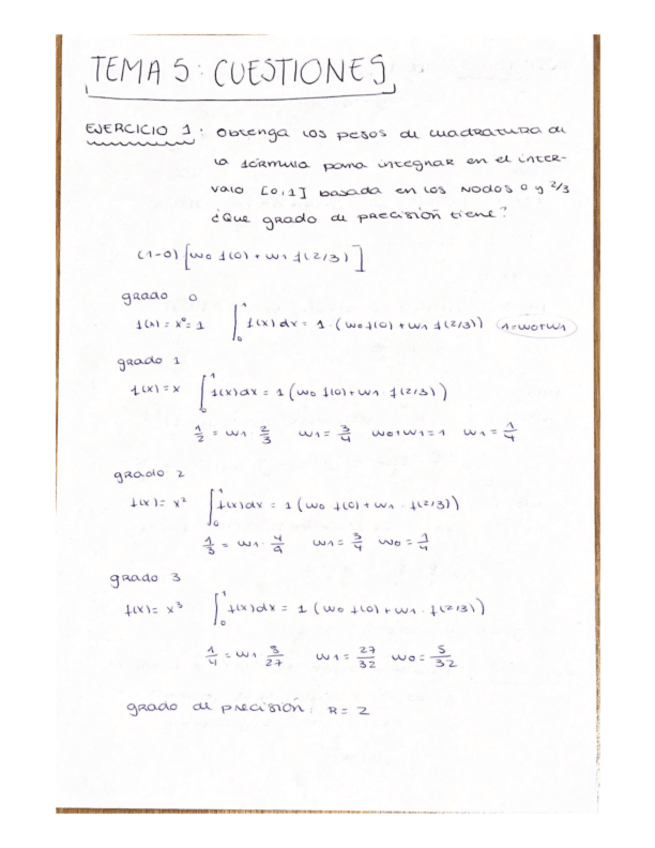 TEMA 5: CUESTIONES
EJERCICIO 1: Obtenga los pesos de cuadratura de
la fórmula para integrar en el inter-
valo [0,1] basada en los nodos 0 y 2/3
¿Que grado de precisión tiene?
(1-0) [w0 f(0) + w1 f(2/3)]
grado 0
f(x) = x⁰ = 1 ∫₀¹ f(x) dx = 1 · (w0 f(0) + w1 f(2/3)) 1=w0+w1
grado 1
f(x) = x ∫₀¹ f(x) dx = 1 (w0 f(0) + w1 · f(2/3))
1/2 = w1 · 2/3 w1 = 3/4 w0+w1=1 w1 = 1/4
grado 2
f(x) = x² ∫₀¹ f(x) dx = 1 (w0 f(0) + w1 · f(2/3))
1/3 = w1 · 4/9 w1 = 3/4 w0 = 1/4
grado 3
f(x) = x³ ∫₀¹ f(x) dx = 1 (w0 f(0) + w1 · f(2/3))
1/4 = w1 · 8/27 w1 = 27/32 w0 = 5/32
grado de precisión: R = 2